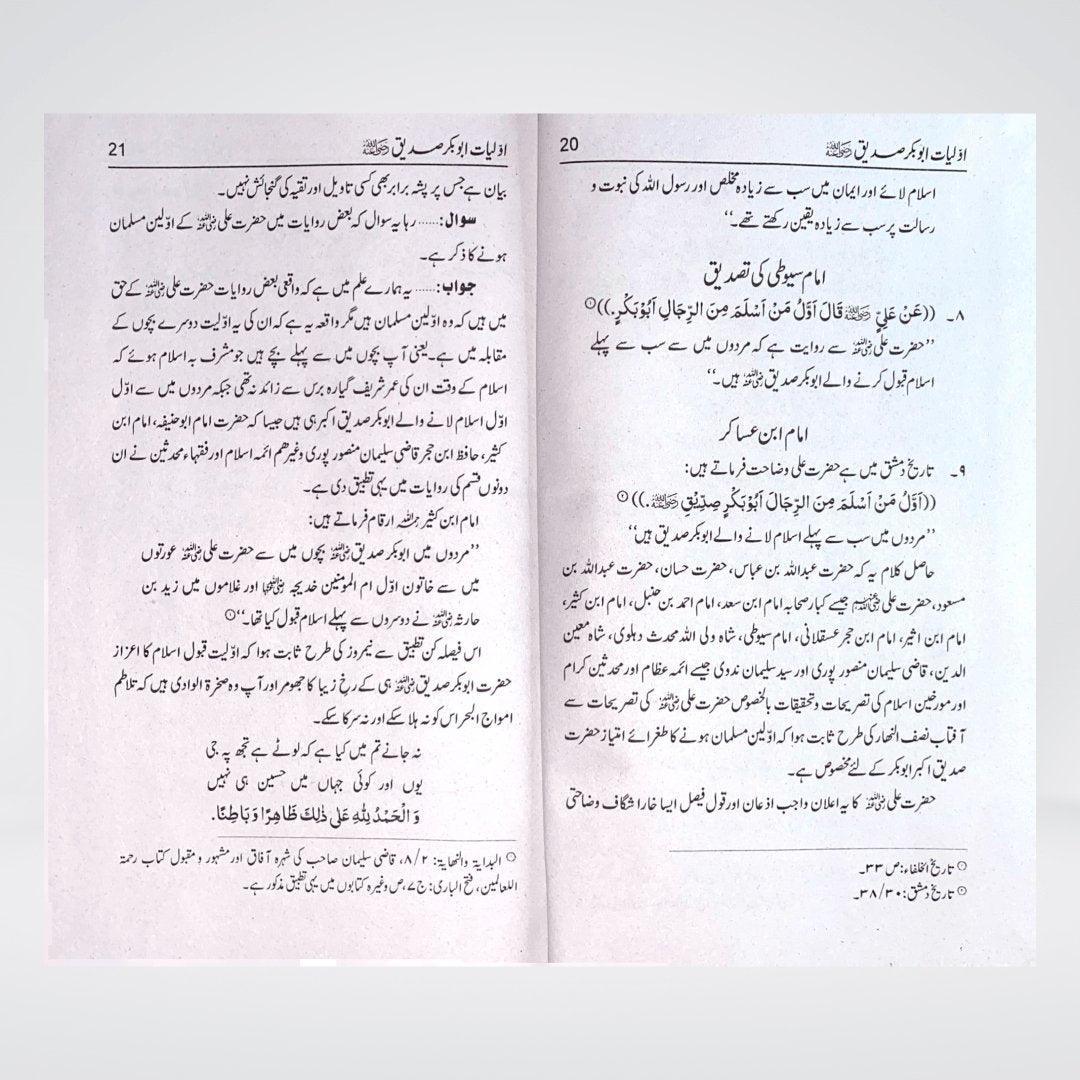 اوّلیات ابوبکر صدیق رضی اللہ عنہ 20
اسلام لائے اور ایمان میں سب سے زیادہ مخلص اور رسول اللہ کی نبوت و
رسالت پر سب سے زیادہ یقین رکھتے تھے۔‘‘
امام سیوطی کی تصدیق
۸۔ ((عَنْ عَلِیٍّ رضی اللہ عنہ قَالَ اَوَّلُ مَنْ اَسْلَمَ مِنَ الرِّجَالِ اَبُوْبَکْرٍ.))①
’’حضرت علی رضی اللہ عنہ سے روایت ہے کہ مردوں میں سے سب سے پہلے
اسلام قبول کرنے والے ابوبکر صدیق رضی اللہ عنہ ہیں۔‘‘
امام ابن عساکر
۹۔ تاریخ دمشق میں ہے حضرت علی وضاحت فرماتے ہیں:
((اَوَّلُ مَنْ اَسْلَمَ مِنَ الرِّجَالَ اَبُوْبَکْرٍ صِدِّیْقِ رضی اللہ عنہ.))①
’’مردوں میں سب سے پہلے اسلام لانے والے ابوبکر صدیق ہیں‘‘
حاصل کلام یہ کہ حضرت عبداللہ بن عباس، حضرت حسان، حضرت عبداللہ بن
مسعود، حضرت علی رضی اللہ عنہم جیسے کبار صحابہ امام ابن سعد، امام احمد بن حنبل، امام ابن کثیر،
امام ابن اثیر، امام ابن حجر عسقلانی، امام سیوطی، شاہ ولی اللہ محدث دہلوی، شاہ معین
الدین، قاضی سلیمان منصور پوری اور سید سلیمان ندوی جیسے ائمہ عظام اور محدثین کرام
اور مورخین اسلام کی تصریحات و تحقیقات بالخصوص حضرت علی رضی اللہ عنہ کی تصریحات سے
آفتاب نصف النھار کی طرح ثابت ہوا کہ اوّلین مسلمان ہونے کا طغرائے امتیاز حضرت
صدیق اکبر ابوبکر کے لئے مخصوص ہے۔
حضرت علی رضی اللہ عنہ کا یہ اعلان واجب اذعان اور قول فیصل ایسا خارا شگاف وضاحتی
① تاریخ الخلفاء: ص ۳۳۔
① تاریخ دمشق: ۳۸/۳۰۔
اوّلیات ابوبکر صدیق رضی اللہ عنہ 21
بیان ہے جس پر پشہ برابر بھی کسی تاویل اور تقیہ کی گنجائش نہیں۔
سوال:...... رہا یہ سوال کہ بعض روایات میں حضرت علی رضی اللہ عنہ کے اوّلین مسلمان
ہونے کا ذکر ہے۔
جواب:...... یہ ہمارے علم میں ہے کہ واقعی بعض روایات حضرت علی رضی اللہ عنہ کے حق
میں ہیں کہ وہ اوّلین مسلمان ہیں مگر واقعہ یہ ہے کہ ان کی یہ اوّلیت دوسرے بچوں کے
مقابلہ میں ہے۔ یعنی آپ بچوں میں سے پہلے بچے ہیں جو مشرف بہ اسلام ہوئے کہ
اسلام کے وقت ان کی عمر شریف گیارہ برس سے زائد نہ تھی جبکہ مردوں میں سے اوّل
اوّل اسلام لانے والے ابوبکر صدیق اکبر ہی ہیں جیسا کہ حضرت امام ابوحنیفہ، امام ابن
کثیر، حافظ ابن حجر قاضی سلیمان منصور پوری وغیرھم ائمہ اسلام اور فقہاء محدثین نے ان
دونوں قسم کی روایات میں یہی تطبیق دی ہے۔
امام ابن کثیر رحمہ اللہ ارقام فرماتے ہیں:
’’مردوں میں ابوبکر صدیق رضی اللہ عنہ بچوں میں سے حضرت علی رضی اللہ عنہ عورتوں
میں سے خاتون اوّل ام المومنین خدیجہ رضی اللہ عنہا اور غلاموں میں زید بن
حارثہ رضی اللہ عنہ نے دوسروں سے پہلے اسلام قبول کیا تھا۔‘‘①
اس فیصلہ کن تطبیق سے نیمروز کی طرح ثابت ہوا کہ اوّلیت قبول اسلام کا اعزاز
حضرت ابوبکر صدیق رضی اللہ عنہ ہی کے رخِ زیبا کا جھومر اور آپ وہ صخرۃ الوادی ہیں کہ تلاطم
امواج البحر اس کو نہ ہلا سکے اور نہ سرکا سکے۔
نہ جانے تم میں کیا ہے کہ لوٹے ہے تجھ پہ جی
یوں اور کوئی جہاں میں حسین ہی نہیں
وَ الْحَمْدُ لِلّٰہِ عَلٰی ذٰلِكَ ظَاهِرًا وَ بَاطِنًا.
① البدایۃ والنھایۃ: ۸/۲، قاضی سلیمان صاحب کی شہرہ آفاق اور مشہور و مقبول کتاب رحمۃ
اللعالمین، فتح الباری: ج ۷، ص وغیرہ کتابوں میں یہی تطبیق مذکور ہے۔